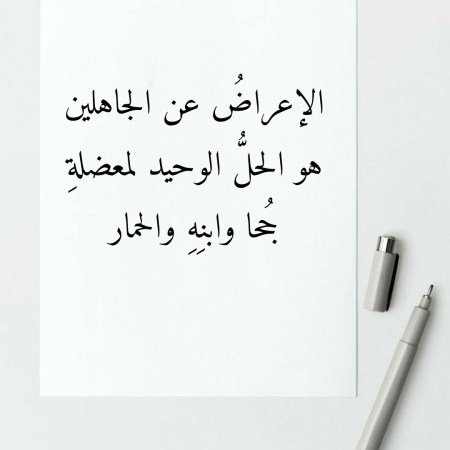 الإعراضُ عن الجاهلين
هو الحلُّ الوحيد لمعضلةِ
جُحا وابنِهِ والحمار